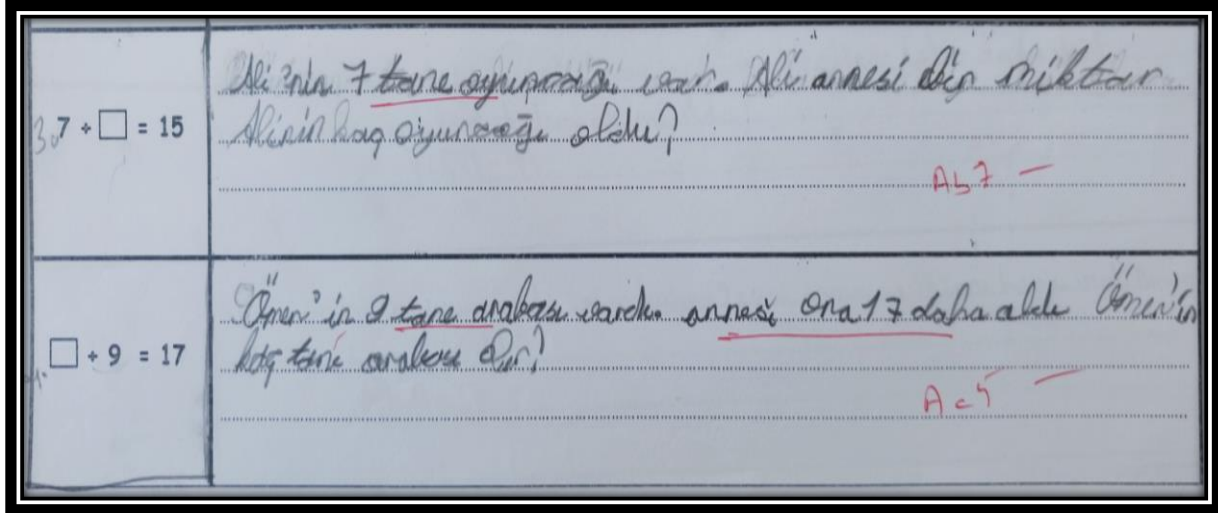 3. 7 + □ = 15
Ali'nin 7 tane oyuncağı var. Ali annesi bir miktar
Alinin kaç oyuncağı oldu?
Ab7 –
□ + 9 = 17
Ömer'in 9 tane arabası vardı. annesi ona 17 daha aldı Ömer'in
kaç tane arabası olur?
Ac5 –